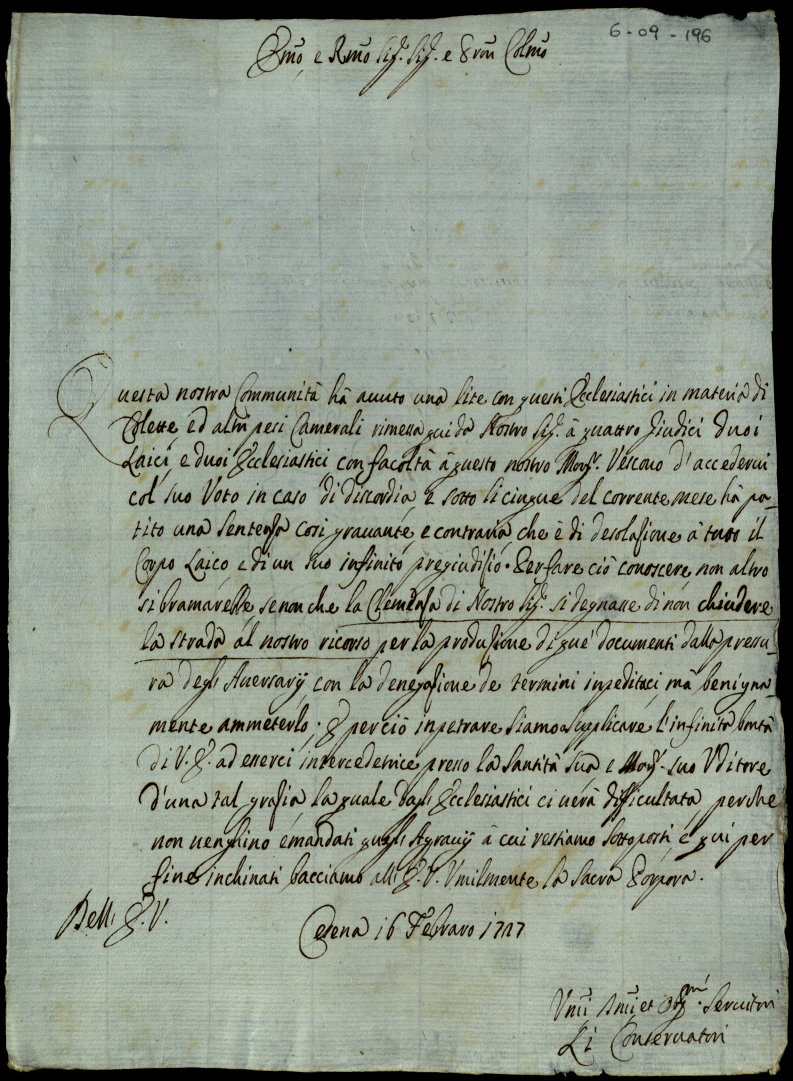 6-09-196
Emo, e Rmo Sig.r Sig.r e Pron Colmo
Questa nostra Communità hà auuto una lite con questi Ecclesiastici in materia di
Colette, ed altri pesi Camerali rimessa qui da Nostro Sig.r à quattro Giudici duoi
Laici, e duoi Ecclesiastici con facoltà à questo nostro Mons.r Vescouo d'accederui
col suo Voto in caso di discordia, e sotto li cinque del corrente mese hà pa-
tito una sentenza cosi grauante, e contraria, che è di desolazione à tutto il
Corpo Laico, e di un suo infinito pregiudizio. Per fare ciò conoscere, non altro
si bramarebbe, se non che la Clemenza di Nostro Sig.r si degnasse di non chiudere
la strada al nostro ricorso per la produzione di que' documenti dalla pressu-
ra degli Auersarij con la denegazione de termini inpeditaci, mà benigna
mente ammeterlo; E perciò inpetrare siamo a supplicare l'infinita bontà
di V. E. ad esserci intercedetrice presso la Santità Sua e Mons.r suo Uditore
d'una tal grazia la quale dagli Ecclesiastici ci uerà difficultata, perche
non uenghino emandati quegli Agrauij à cui restiamo sottoposti e qui per
fine inchinati bacciamo all' E. V. Umilmente la Sacra Porpora.
Dell' E. V.
Cesena 16 Febraro 1727
Umi Deuot et Obg.mi Seruitori
Li Conseruatori